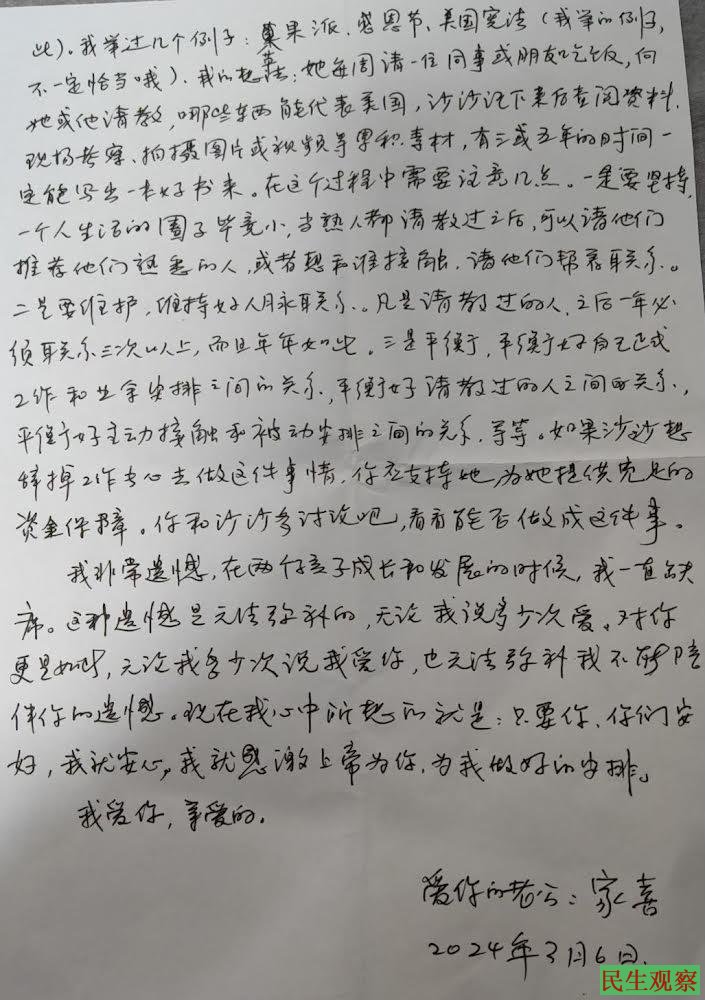 此)。我举过几个例子:苹果派、感恩节、美国宪法(我举的例子,
不一定恰当哦)。我的想法:她每周请一位同事或朋友吃饭,向
她或他请教,哪些东西能代表美国,沙沙记下来后查阅资料、
现场考察、拍摄图片或视频等累积素材,有三或五年的时间一
定能写出一本好书来。在这个过程中需要注意几点。一是要坚持,
一个人生活的圈子毕竟小,当熟人都请教过之后,可以请他们
推荐他们熟悉的人,或者想和谁接触,请他们帮忙联系。
二是要维护,维持好人脉联系。凡是请教过的人,之后一年必
须联系三次以上,而且年年如此。三是平衡,平衡好自己正式
工作和业余安排之间的关系,平衡好请教过的人之间的关系,
平衡好主动接触和被动安排之间的关系,等等。如果沙沙想
辞掉工作专心去做这件事情,你应支持她,为她提供充足的
资金保障。你和沙沙多讨论吧,看看能否做成这件事。
我非常遗憾,在两个孩子成长和发展的时候,我一直缺
席。这种遗憾是无法弥补的,无论我说多少次爱。对你
更是如此,无论我多少次说我爱你,也无法弥补我不能陪
伴你的遗憾。现在我心中所想的就是:只要你、你们安
好,我就安心,我就感激上帝为你、为我做好的安排。
我爱你,亲爱的。
爱你的老公:家喜
2024年3月6日.
民生观察